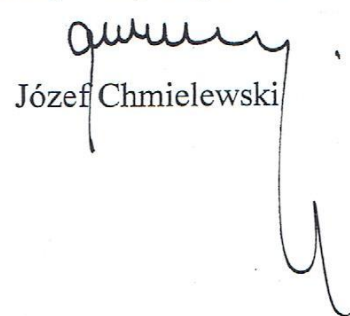 Józef Chmielewski